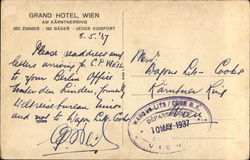 GRAND HOTEL, WIEN
AM KÄRNTNERRING
350 ZIMMER · 180 BÄDER · JEDER KOMFORT
8.5.37
Please readdress any
letters arriving for C.P. WEIL
to your Berlin Office
Unter den Linden, formerly
Weltreisebureau Union
and not to Wagons Lits Cook
Messrs
Wagons Lits - Cooks
Kärntner Ring
Wien
WAGONS-LITS / COOK
10 MAY 1937
VIEN